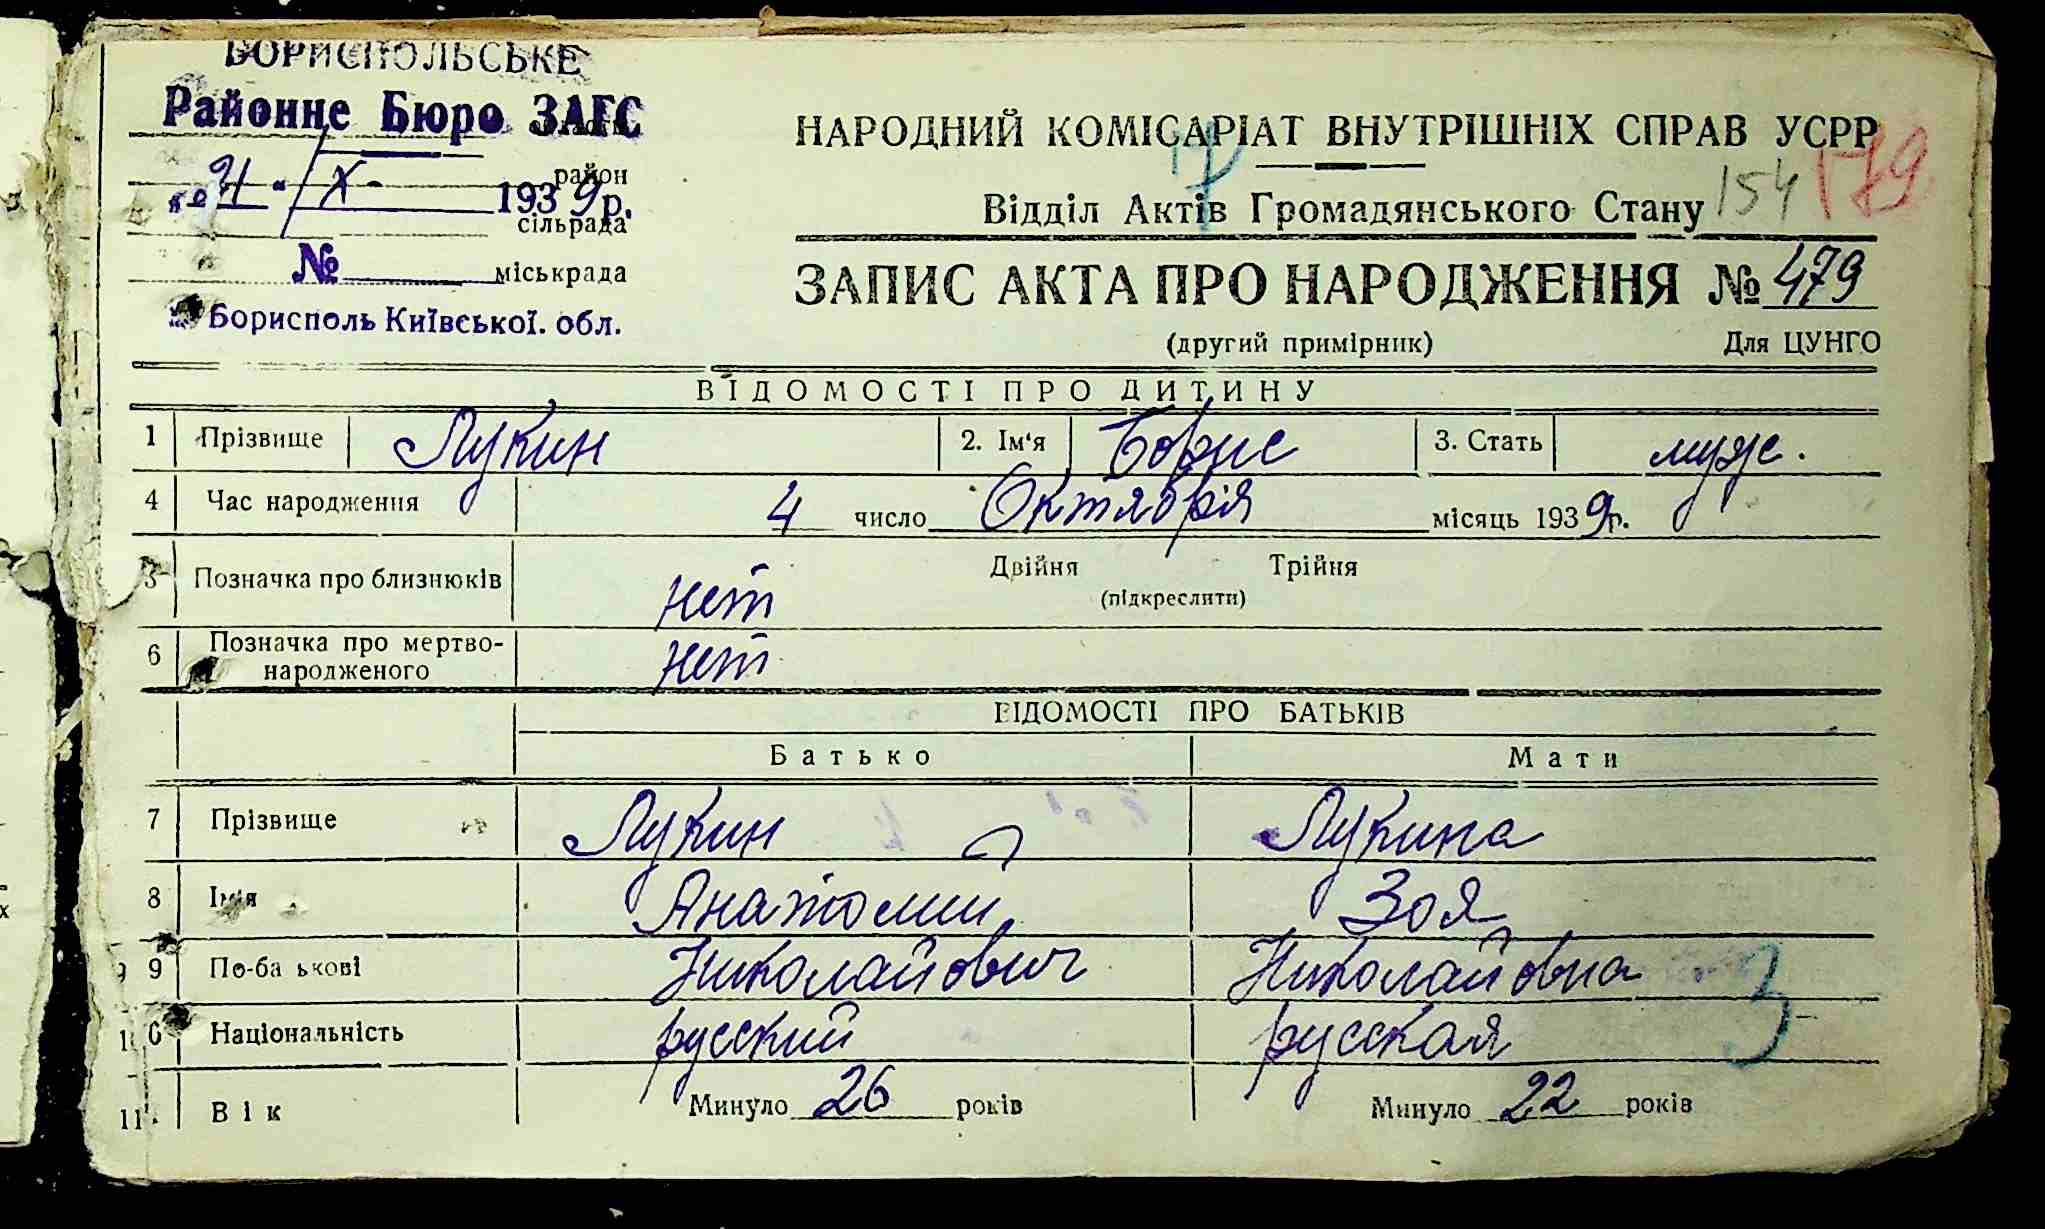 БОРИСПОЛЬСЬКЕ
Районне Бюро ЗАГС
район
"21" X 1939р.
сільрада
№ міськрада
Борисполь Київської. обл.
НАРОДНИЙ КОМІСАРІАТ ВНУТРІШНІХ СПРАВ УСРР
7
Відділ Актів Громадянського Стану 154 179
ЗАПИС АКТА ПРО НАРОДЖЕННЯ № 479
(другий примірник) Для ЦУНГО
ВІДОМОСТІ ПРО ДИТИНУ
1 Прізвище Лукин 2. Ім'я Борис 3. Стать муж.
4 Час народження 4 число Октября місяць 1939р.
5 Позначка про близнюків нет Двійня Трійня
(підкреслити)
6 Позначка про мертво-
народженого нет
ВІДОМОСТІ ПРО БАТЬКІВ
Батько Мати
7 Прізвище Лукин Лукина
8 Ім'я Анатолий Зоя
9 9 По-ба ькові Николайович Николайовна
3
10 Національність русский русская
11. Вік Минуло 26 років Минуло 22 років